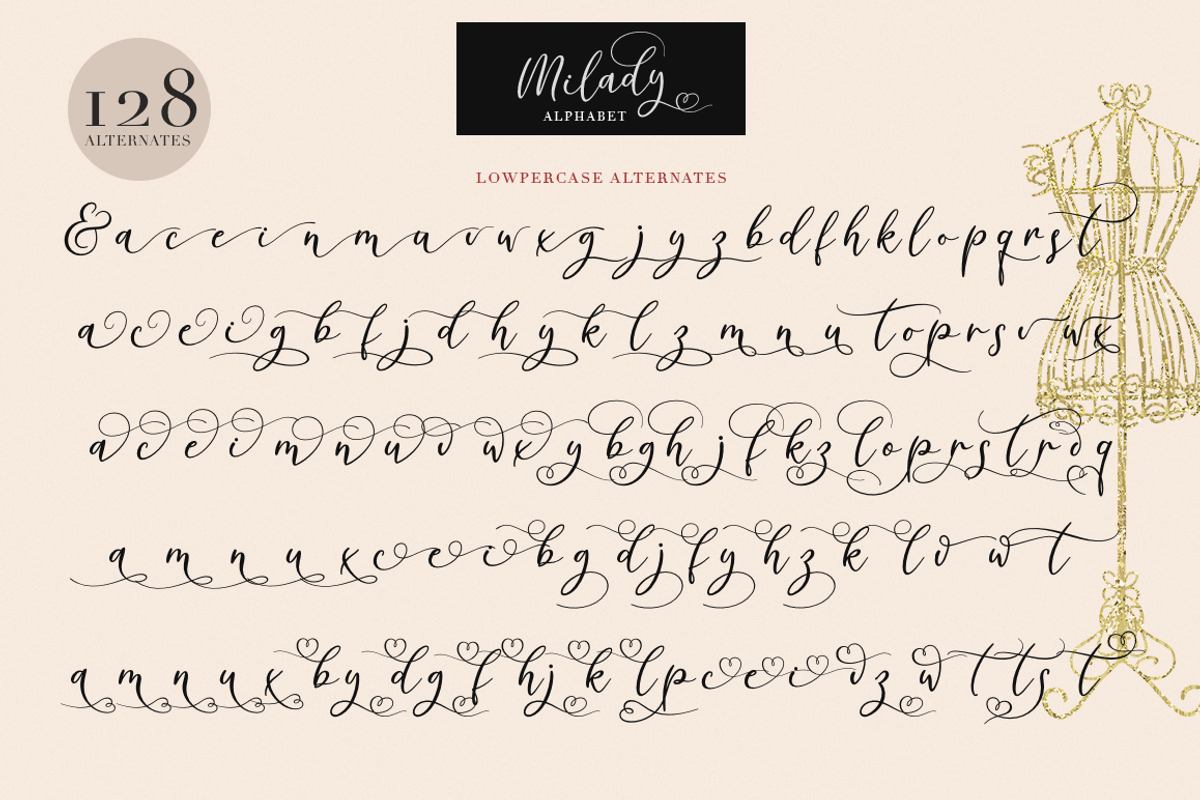 128
ALTERNATES
Milady
ALPHABET
LOWPERCASE ALTERNATES
& a c e i n m a u v w x g j y z b d f h k l o p q r s t
a c e i g b f j d h y k l z m n u t o p r s v w x
a c e i m n u v w x y b g h j f k z l o p r s t r d q
a m n u x c e i b g d j f y h z k l v w t
a m n u x b y d g f h j k l p c e i v z w t t s t